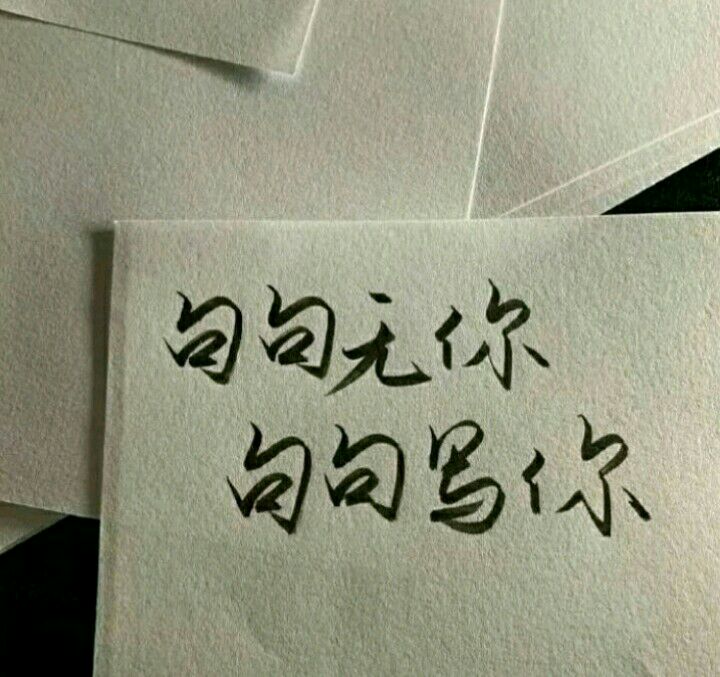 句句无你
句句写你